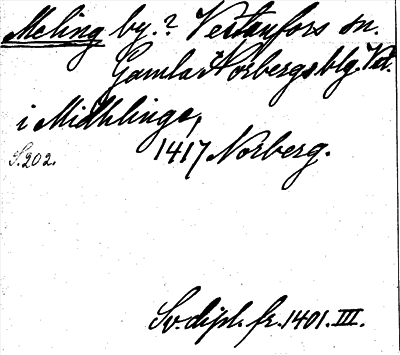 Meling by.? Vestanfors sn.
Gamla Norbergs blg. Vstm.
i Midhlinge,
S. 202. 1417 Norberg.
Sv. dipl. fr. 1401. III.